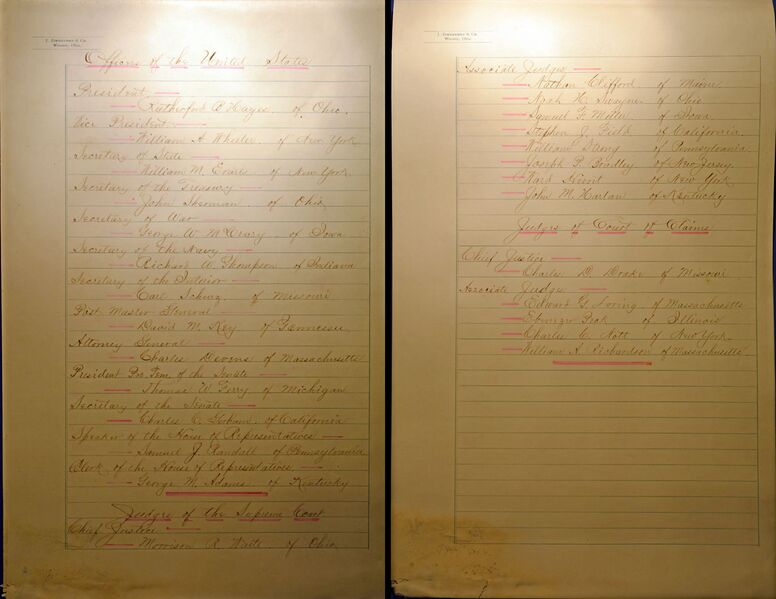 J. Zimmerman & Co.
Wooster, Ohio.
Officers of the United States
President
Rutherford B Hayes of Ohio.
Vice President
William A Wheeler of New York
Secretary of State
William M. Evarts of New York
Secretary of the Treasury
John Sherman of Ohio
Secretary of War
George W. McCrary of Iowa
Secretary of the Navy
Richard W. Thompson of Indiana
Secretary of the Interior
Carl Schurz of Missouri
Post Master General
David M. Key of Tennessee
Attorney General
Charles Devens of Massachusetts
President Pro Tem of the Senate
Thomas W. Ferry of Michigan
Secretary of the Senate
Charles C. Gorham of California
Speaker of the House of Representatives
Samuel J. Randall of Pennsylvania
Clerk of the House of Representatives
George M. Adams of Kentucky
Judges of the Supreme Court
Chief Justice
Morrison R. Waite of Ohio
J. Zimmerman & Co.
Wooster, Ohio.
Associate Judges
Nathan Clifford of Maine
Noah H. Swayne of Ohio
Samuel F. Miller of Iowa
Stephen J. Field of California.
William Strong of Pennsylvania
Joseph P. Bradley of New Jersey.
Ward Hunt of New York
John M. Harlan of Kentucky
Judges of Court of Claims
Chief Justice
Charles D. Drake of Missouri
Associate Judges
Edward G. Loring of Massachusetts
Ebenezer Peck of Illinois
Charles C. Nott of New York.
William A. Richardson of Massachusetts.